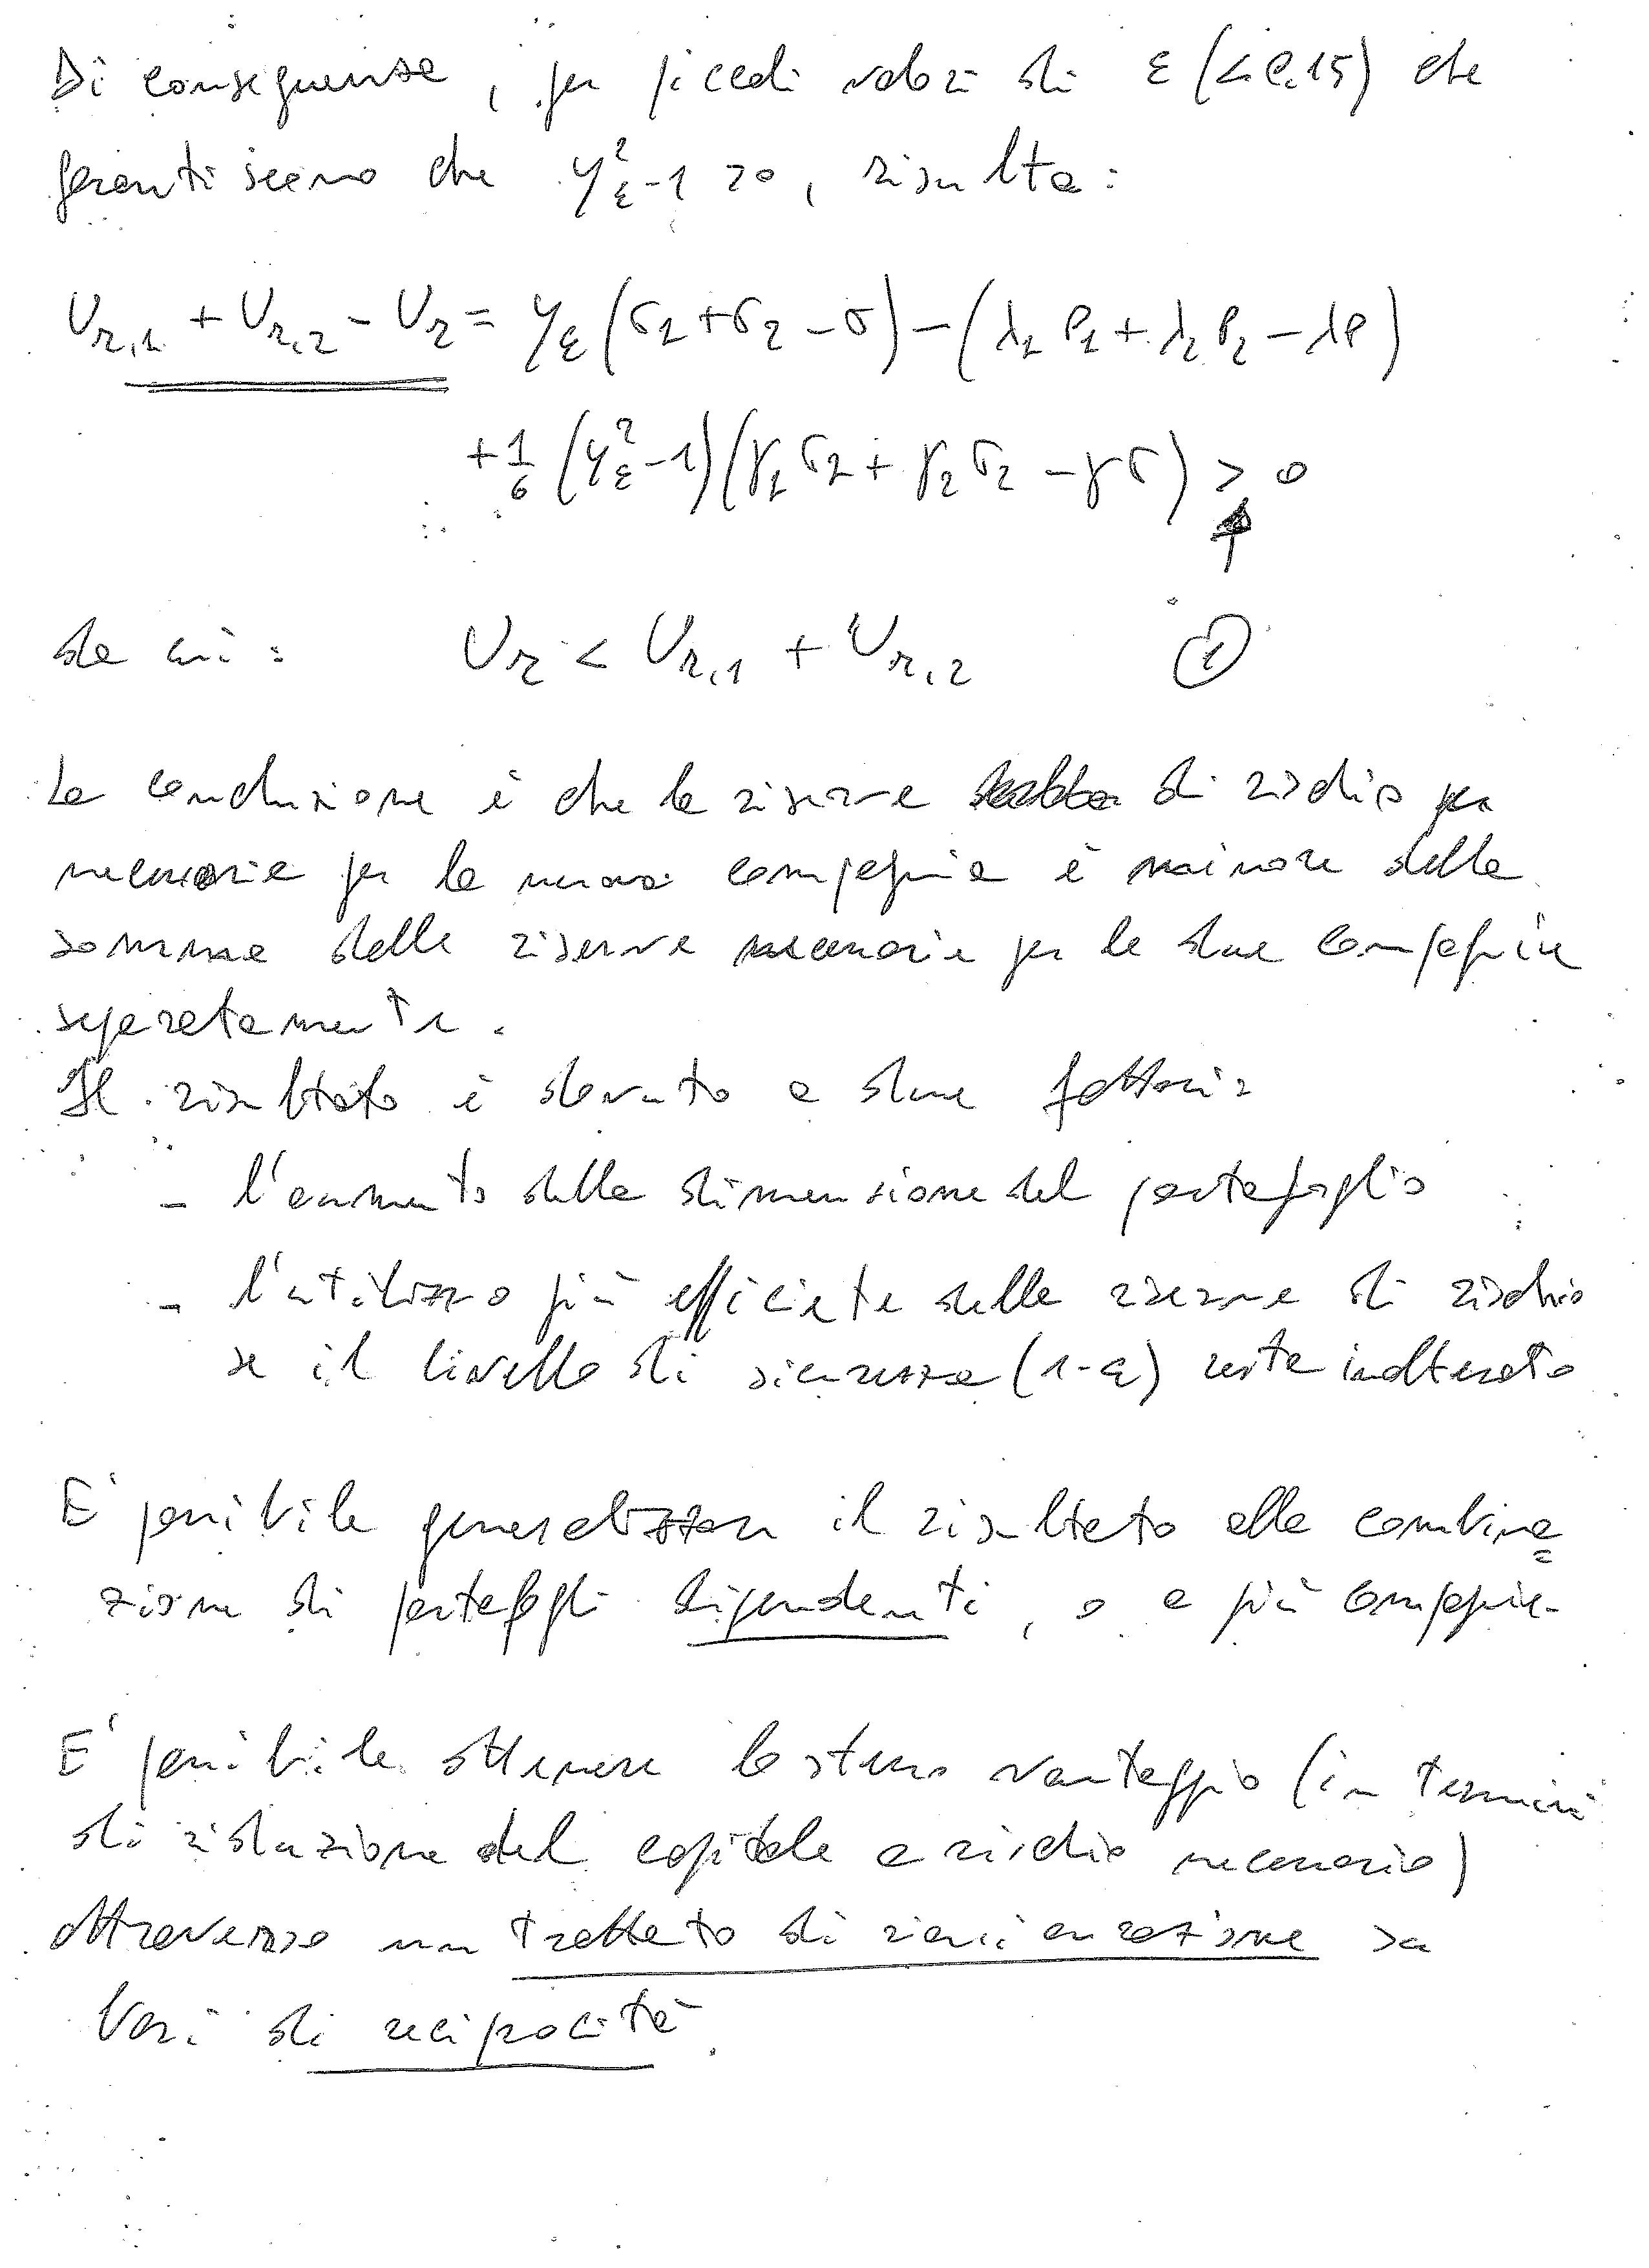 Di conseguenza, per piccoli valori di ε (< 0.15) che
garantiscono che y²_ε - 1 > 0, risulta:
U_{r,1} + U_{r,2} - U_r = y_ε (σ_1 + σ_2 - σ) - (λ_1 P_1 + λ_2 P_2 - λP)
+ 1/6 (y²_ε - 1)(γ_1 σ_1 + γ_2 σ_2 - γσ) > 0
↑
da cui: U_r < U_{r,1} + U_{r,2} ①
La conclusione è che la riserva di rischio
necessaria per la nuova compagnia è minore della
somma delle riserve necessarie per le due compagnie
separatamente.
Il risultato è dovuto a due fattori:
- l'aumento della dimensione del portafoglio
- l'utilizzo più efficiete delle riserve di rischio
se il livello di sicurezza (1-ε) resta inalterato
E' possibile generalizzare il risultato alla combina
zione di portafogli dipendenti, o a più compagnie.
E' possibile ottenere lo stesso vantaggio (in termini
di riduzione del capitale a rischio necessario)
attraverso un trattato di riassicurazione su
basi di reciprocità.